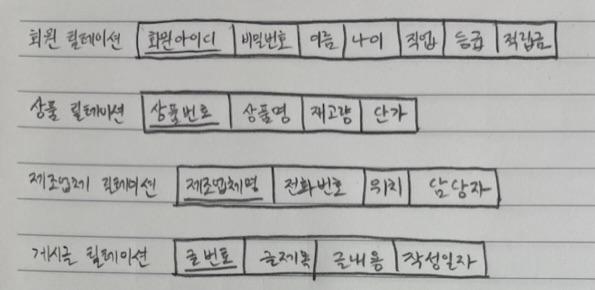 회원 릴레이션 회원아이디 비밀번호 이름 나이 직업 등급 적립금
상품 릴레이션 상품번호 상품명 재고량 단가
제조업체 릴레이션 제조업체명 전화번호 위치 담당자
게시글 릴레이션 글번호 글제목 글내용 작성일자